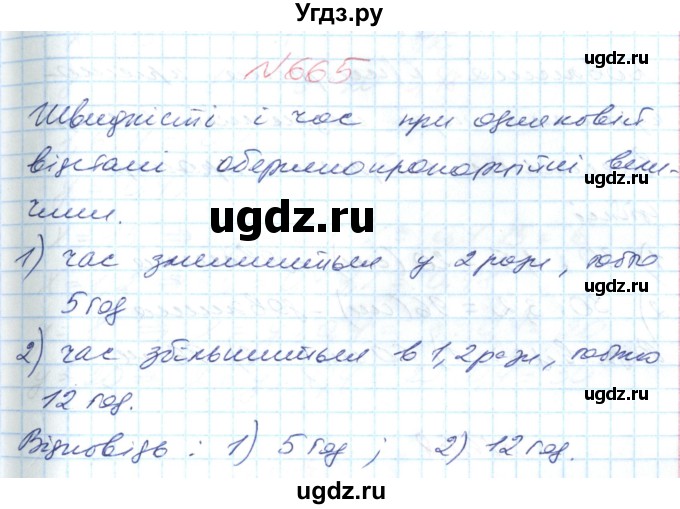 Угдз.ру
ugdz.ru
№665
Швидкісті і час при однаковій ugdz.ru
відстані оберненопропорційні вели-
чини. ugdz.ru ugdz.ru
1) час зменшиться у 2 рази, тобто
5 год ugdz.ru
2) час збільшиться в 1,2 рази, тобто
12 год. ugdz.ru
Відповідь: 1) 5 год; 2) 12 год.
ugdz.ru